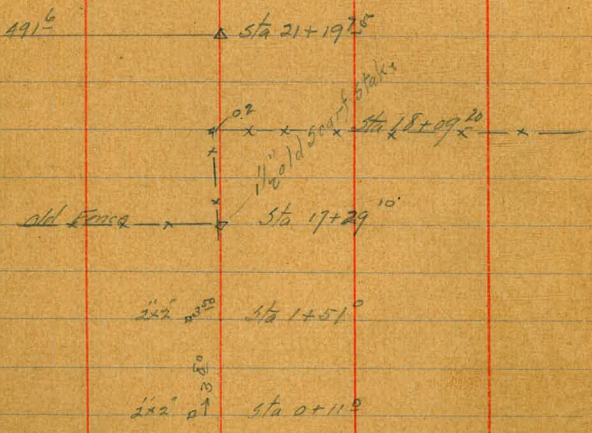 491⁶ sta 21+19⁷⁵
0.2
Sta 18+09²⁰
1½" old scarf stake
old Fence Sta 17+29¹⁰
2"x2" 3⁵⁰ Sta 1+51⁰
3.8⁰
2"x2" Sta 0+11⁰